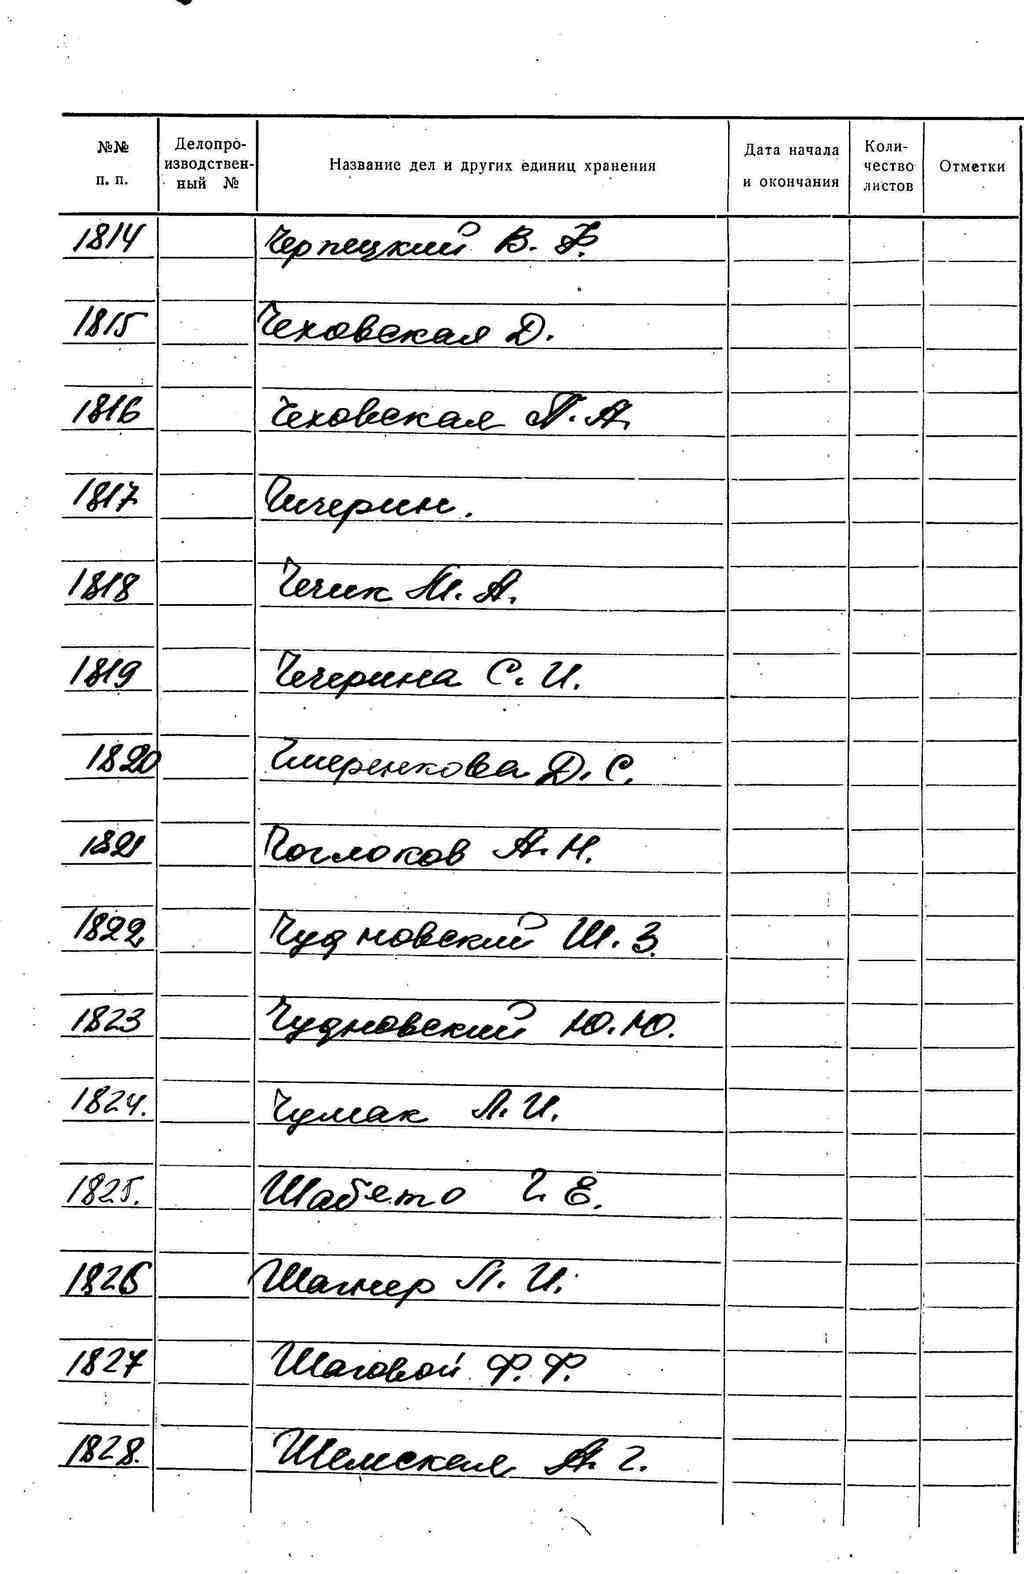 №№ п. п. Делопро-изводствен-ный № Название дел и других единиц хранения Дата начала и окончания Коли-чество листов Отметки
1814 Черпецкий В. Ф.
1815 Чеховская Д.
1816 Чеховская П. А.
1817 Чичерин.
1818 Чечик М. А.
1819 Чечерина С. И.
1820 Чмеренкова Д. С.
1821 Чоглоков А. Н.
1822 Чудновский Ш. З.
1823 Чудновский Ю. Ю.
1824. Чумак Л. И.
1825. Шабето Г. Е.
1826 Шагнер Л. И.
1827 Шаговой Ф. Ф.
1828. Шемская А. Г.